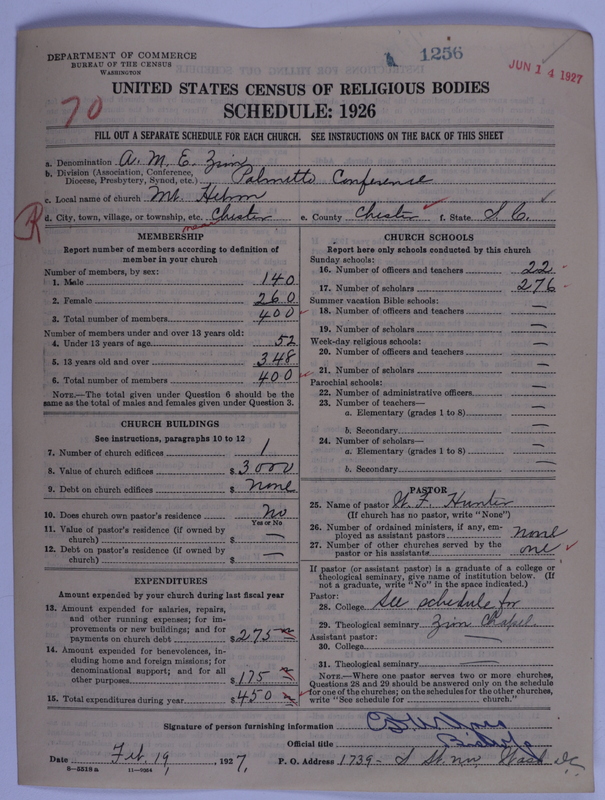 DEPARTMENT OF COMMERCE
BUREAU OF THE CENSUS
WASHINGTON
1256
JUN 14 1927
70
UNITED STATES CENSUS OF RELIGIOUS BODIES
SCHEDULE: 1926
FILL OUT A SEPARATE SCHEDULE FOR EACH CHURCH. SEE INSTRUCTIONS ON THE BACK OF THIS SHEET
a. Denomination A. M. E. Zion
b. Division (Association, Conference, Diocese, Presbytery, Synod, etc.) Palmetto Conference
c. Local name of church Mt. Hebron
d. City, town, village, or township, etc. near Chester e. County Chester f. State S. C.
R
MEMBERSHIP
Report number of members according to definition of member in your church
Number of members, by sex:
1. Male 140
2. Female 260
3. Total number of members 400
Number of members under and over 13 years old:
4. Under 13 years of age 52
5. 13 years old and over 348
6. Total number of members 400
NOTE.—The total given under Question 6 should be the same as the total of males and females given under Question 3.
CHURCH BUILDINGS
See instructions, paragraphs 10 to 12
7. Number of church edifices 1
8. Value of church edifices $ 3000
9. Debt on church edifices $ none
10. Does church own pastor's residence No
Yes or No
11. Value of pastor's residence (if owned by church) $ —
12. Debt on pastor's residence (if owned by church) $ —
EXPENDITURES
Amount expended by your church during last fiscal year
13. Amount expended for salaries, repairs, and other running expenses; for improvements or new buildings; and for payments on church debt $ 275
14. Amount expended for benevolences, including home and foreign missions; for denominational support; and for all other purposes $ 175
15. Total expenditures during year $ 450
CHURCH SCHOOLS
Report here only schools conducted by this church
Sunday schools:
16. Number of officers and teachers 22
17. Number of scholars 276
Summer vacation Bible schools:
18. Number of officers and teachers —
19. Number of scholars —
Week-day religious schools:
20. Number of officers and teachers —
21. Number of scholars —
Parochial schools:
22. Number of administrative officers —
23. Number of teachers—
a. Elementary (grades 1 to 8) —
b. Secondary —
24. Number of scholars—
a. Elementary (grades 1 to 8) —
b. Secondary —
PASTOR
25. Name of pastor W. F. Hunter
(If church has no pastor, write "None")
26. Number of ordained ministers, if any, employed as assistant pastors none
27. Number of other churches served by the pastor or his assistants one
If pastor (or assistant pastor) is a graduate of a college or theological seminary, give name of institution below. (If not a graduate, write "No" in the space indicated.)
Pastor:
28. College See schedule for
29. Theological seminary Zion Chapel.
Assistant pastor:
30. College —
31. Theological seminary —
NOTE.—Where one pastor serves two or more churches, Questions 28 and 29 should be answered only on the schedule for one of the churches; on the schedules for the other churches, write "See schedule for ______ church."
Signature of person furnishing information
Official title Bishop
Date Feb. 19, 1927, P. O. Address 1739- S St. NW, Wash DC
8-5518a 11-9094